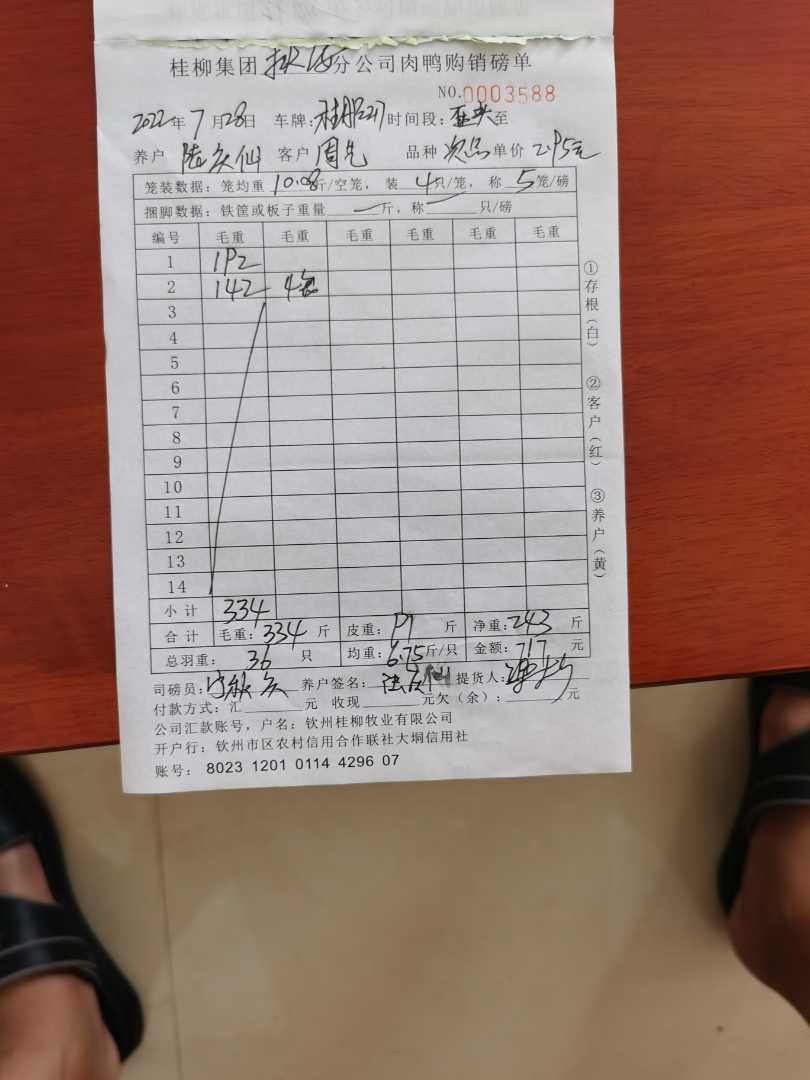 桂柳集团 钦防分公司肉鸭购销磅单
NO.0003588
2022年7月28日 车牌: 时间段: 至
养户 陆庆仙 客户 周先 品种 次品 单价 2.95元
笼装数据: 笼均重 10.08斤/空笼, 装 4只/笼, 称 5笼/磅
捆脚数据: 铁筐或板子重量 一 斤, 称 一 只/磅
编号 毛重 毛重 毛重 毛重 毛重 毛重
1 192
2 142 4笼
3
4
5
6
7
8
9
10
11
12
13
14
小计 334
合计 毛重: 334 斤 皮重: 91 斤 净重: 243 斤
总羽重: 36 只 均重: 6.75斤/只 金额: 717元
司磅员: 养户签名: 陆庆仙 提货人:
付款方式: 汇 元 收现 元欠(余): 元
公司汇款账号, 户名: 钦州桂柳牧业有限公司
开户行: 钦州市区农村信用合作联社大垌信用社
账号: 8023 1201 0114 4296 07
①存根(白)
②客户(红)
③养户(黄)